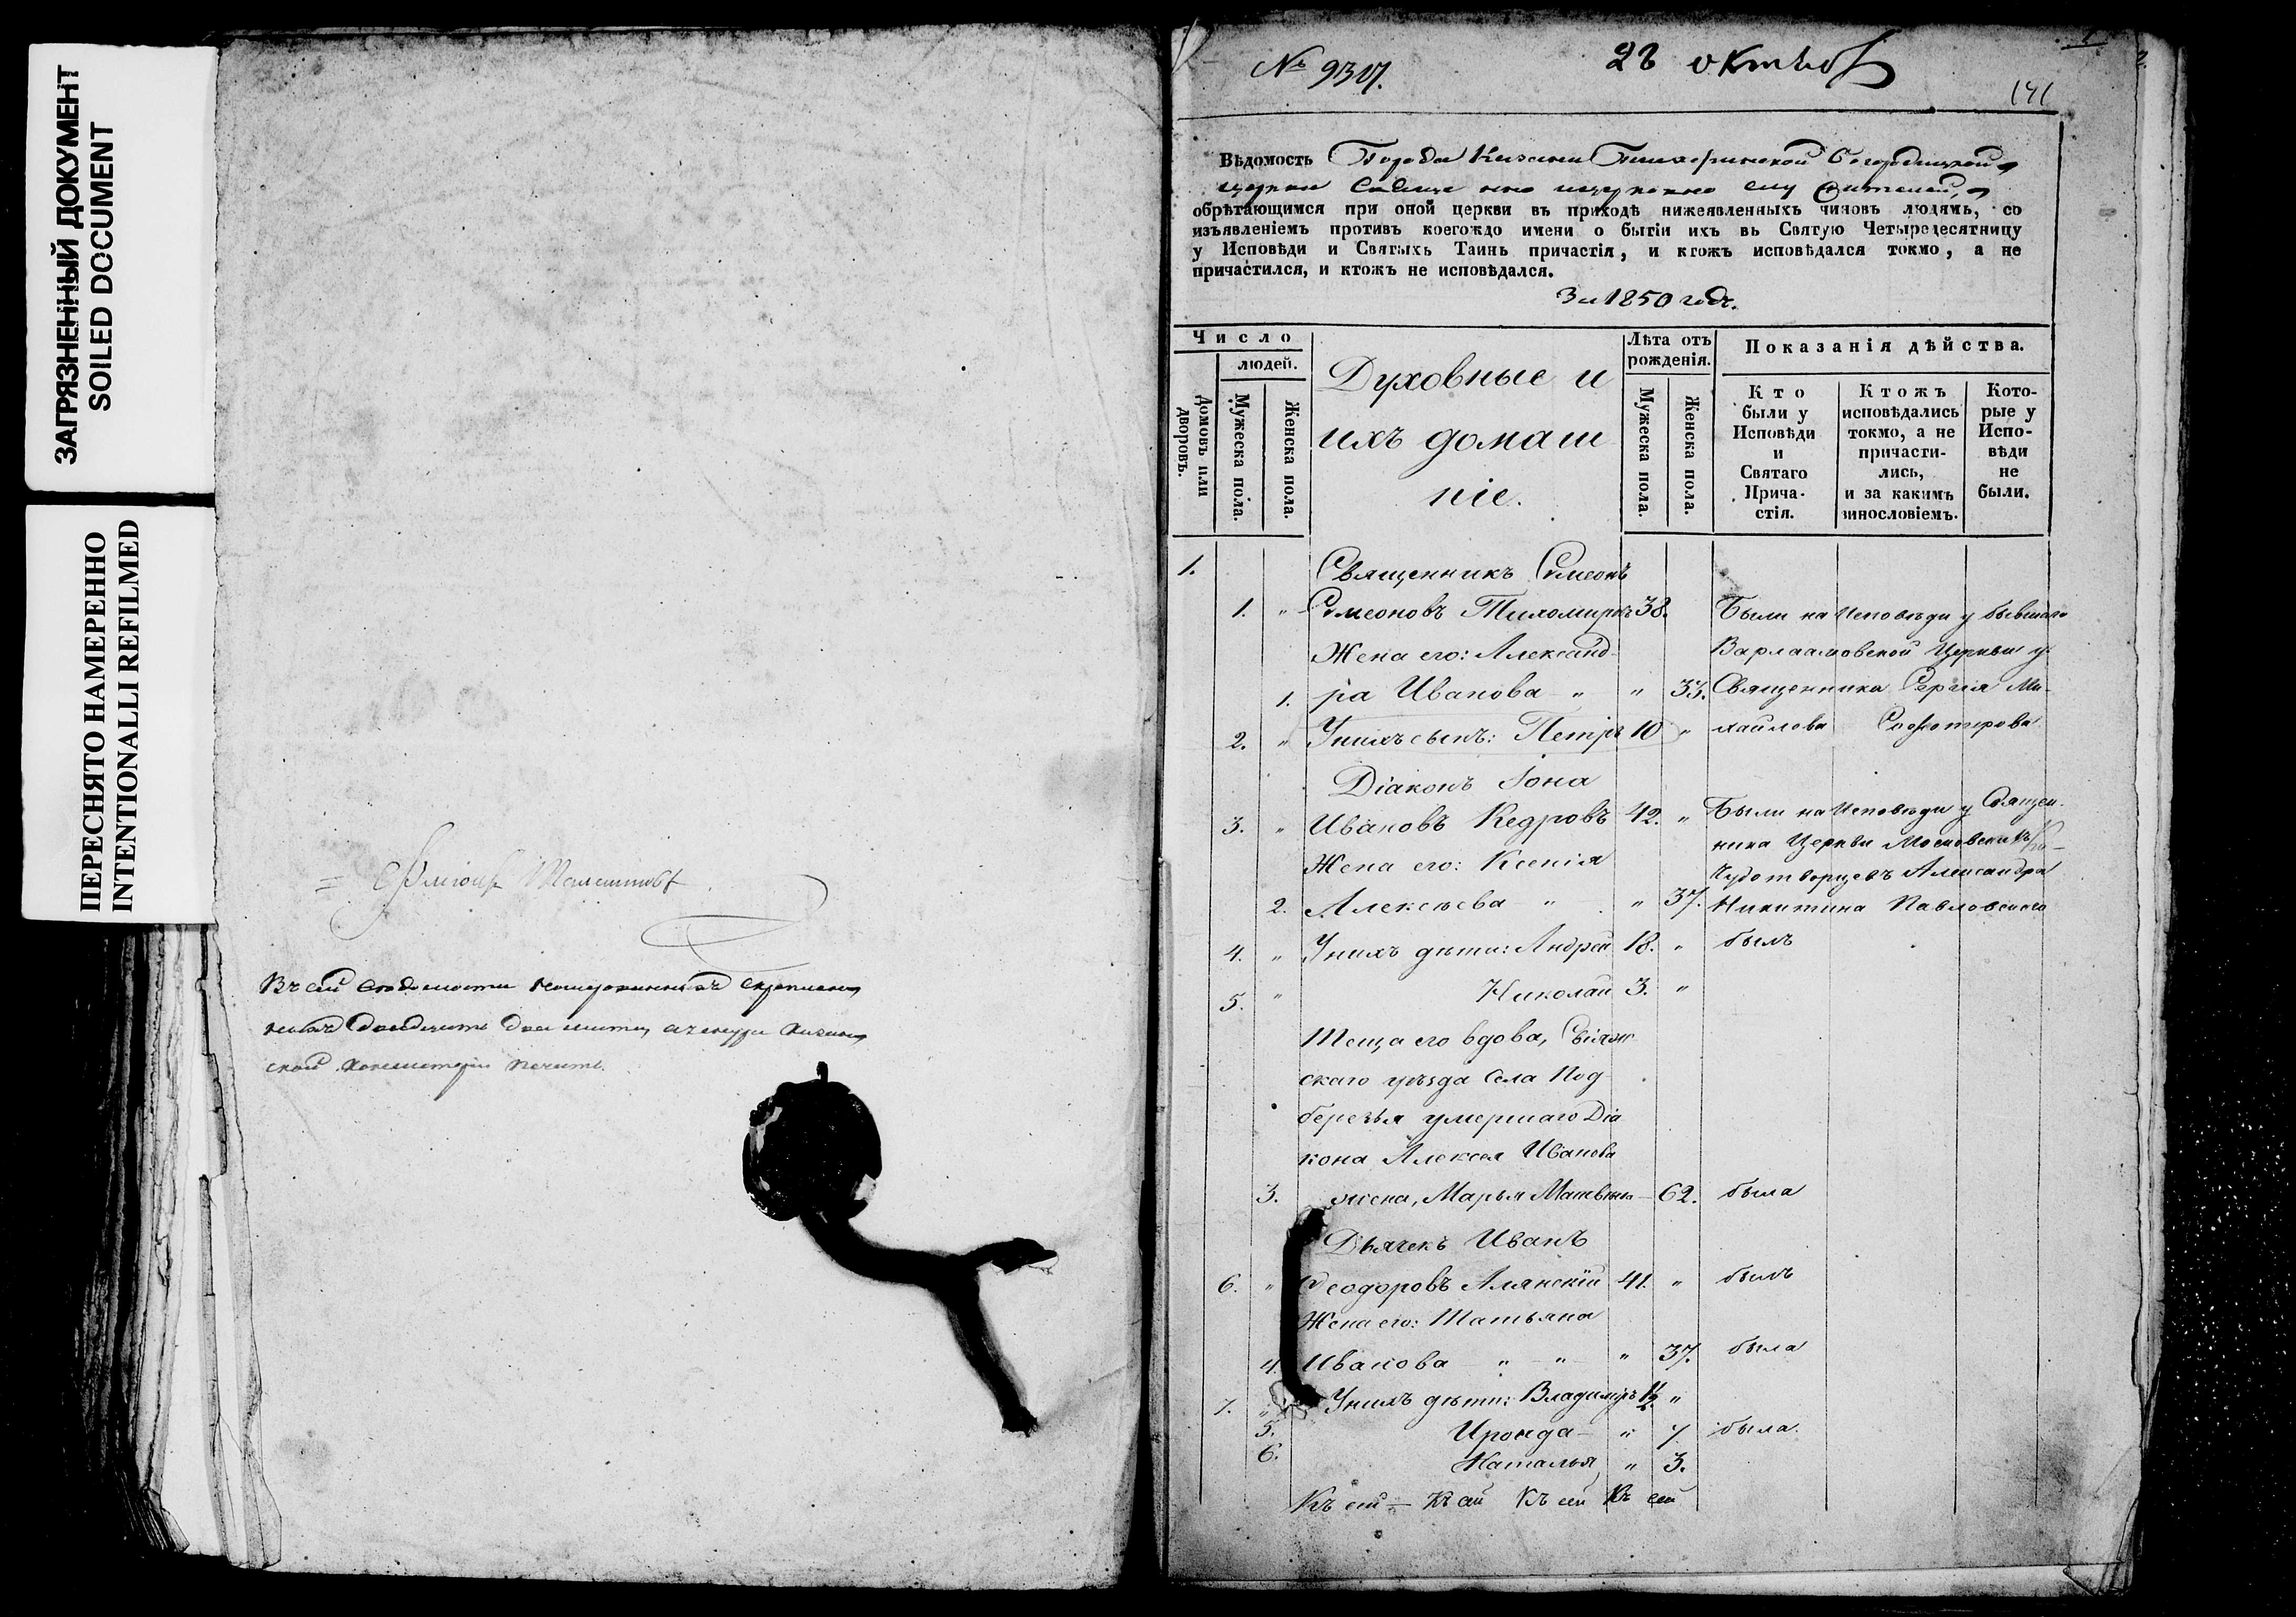 ЗАГРЯЗНЕННЫЙ ДОКУМЕНТ
SOILED DOCUMENT
ПЕРЕСНЯТО НАМЕРЕННО
INTENTIONALLI REFILMED
Въ сей
двадцать два
печать.
№ 9317.
141
Вѣдомость Города Казани Богородицкой
церкви
обрѣтающимся при оной церкви въ приходѣ нижеявленныхъ чиновъ людямъ, со
изъявленіемъ противъ коегождо имени о бытіи ихъ въ Святую Четыредесятницу
у Исповѣди и Святыхъ Таинъ причастія, и ктожъ исповѣдался токмо, а не
причастился, и ктожъ не исповѣдался.
За 1850 годъ.
Число
людей.
Домовъ или дворовъ.
Мужеска пола.
Женска пола.
Духовные и
ихъ домаш
ніе.
Лѣта отъ рожденія.
Мужеска пола.
Женска пола.
Показанія дѣйства.
Кто были у Исповѣди и Святаго Прича-стія.
Ктожъ исповѣдались токмо, а не причасти-лись, и за какимъ винословіемъ.
Кото-рые у Испо-вѣди не были.
1. Священникъ Симеонъ
1. " Симеоновъ Тихомировъ 38. Были на Исповѣди у бывшаго
Жена его: Александ- Варлаамовской Церкви у
1. ра Иванова " " 33. Священника Сергія Ми-
2. " У нихъ сынъ: Петръ 10 " хайлова
Діаконъ Іона
3. " Ивановъ Кедровъ 42. " Были на Исповѣди у Священ-
Жена его: Ксенія ника Церкви Московскихъ
Чудотворцевъ Александра
2. Алексѣева " " 37. Никитина Павловскаго
4. " У нихъ дѣти: Андрей 18. " былъ
5. " Николай 3. "
Теща его вдова, Свіяж
скаго уѣзда Села Под
березья умершаго Діа
кона Алексея Иванова
3. жена, Марья 62. была
Дьячекъ Иванъ
6. " Ѳеодоровъ Алянскій 41. " былъ
Жена его: Татьяна
4. Иванова " " " 37. была
7. " У нихъ дѣти: Владиміръ 1½ "
5. Ироида " 7 была.
6. Наталья " 3.
Къ сей Къ сей Къ сей Къ сей